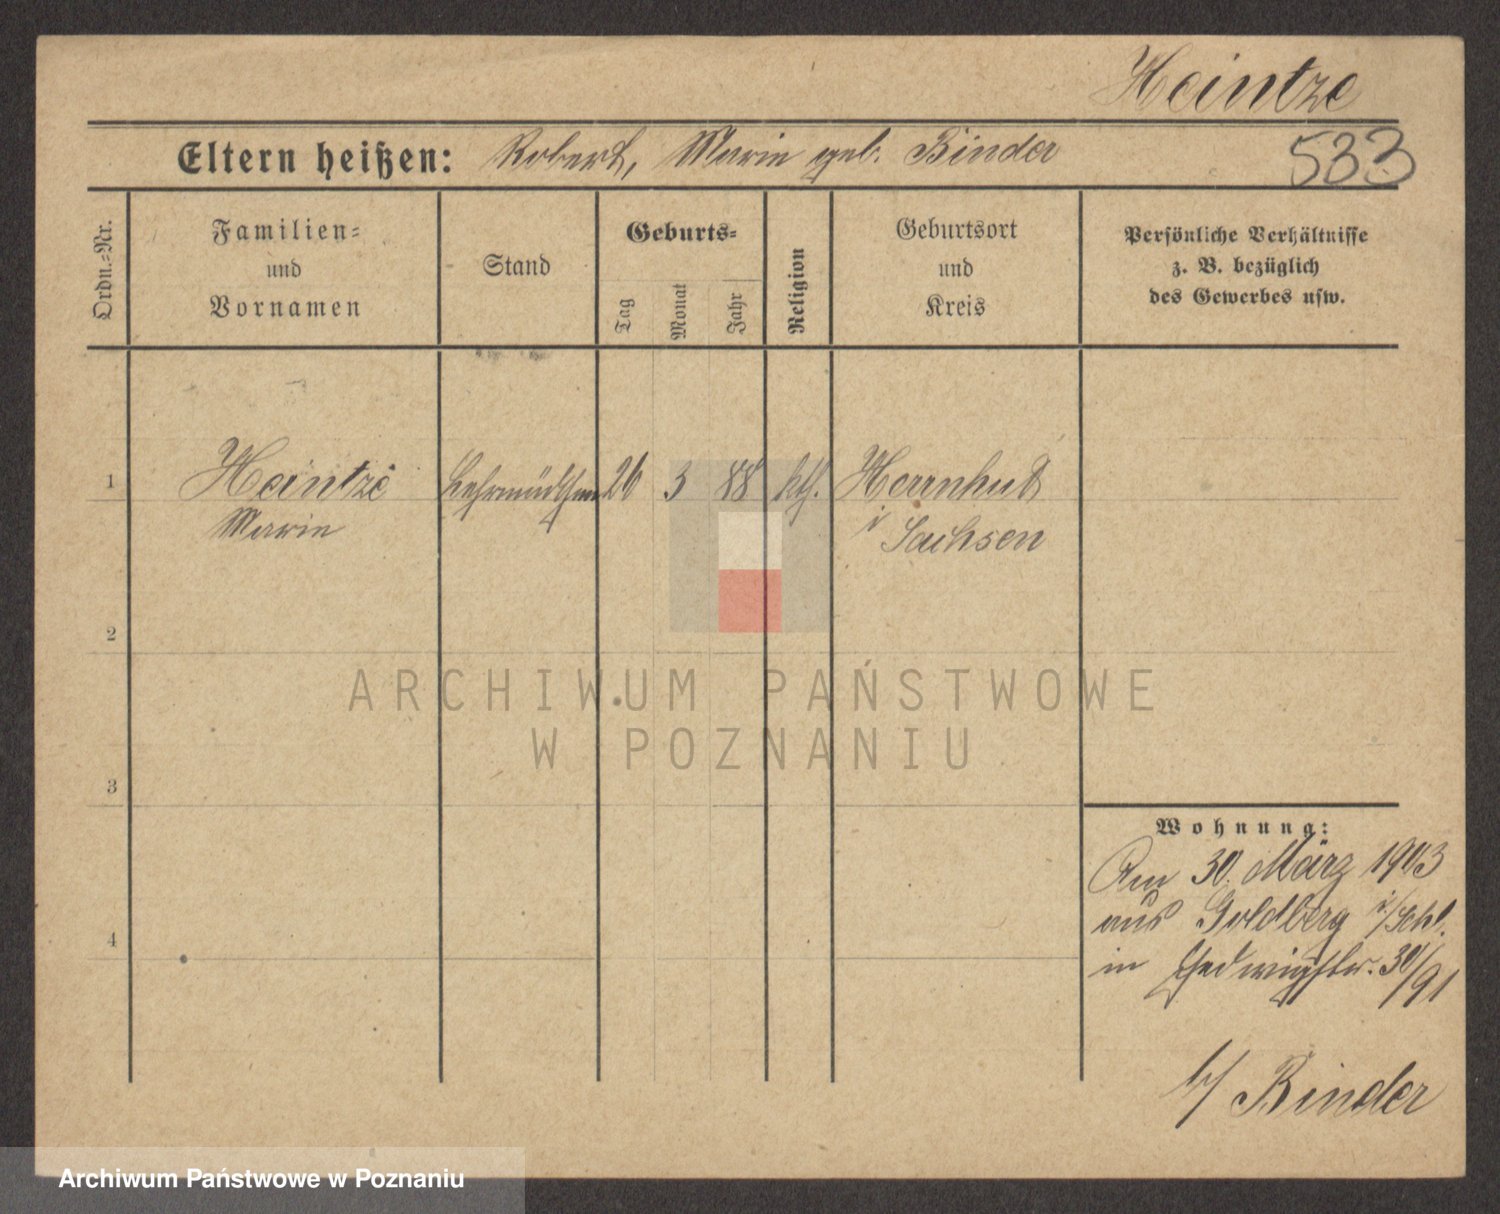 Heintze
Eltern heißen: Robert, Marie geb. Binder
533
Ordn.-Nr.
Familien-
und
Vornamen
Stand
Geburts-
Tag
Monat
Jahr
Religion
Geburtsort
und
Kreis
Persönliche Verhältnisse
z. B. bezüglich
des Gewerbes usw.
1 Heintze Lehrmädchen 26 3 88 kth. Herrnhut
Marie i Sachsen
2
ARCHIWUM PAŃSTWOWE
W POZNANIU
3
Wohnung:
Am 30. März 1903
aus Goldberg i/Schl.
4
in Hedwigstr. 30/91
b/ Binder
Archiwum Państwowe w Poznaniu